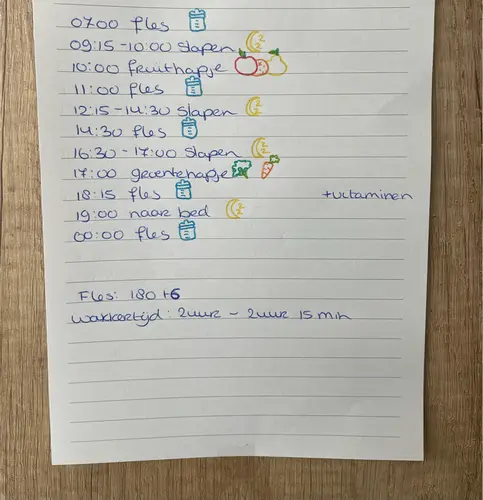 07:00 fles
09:15 - 10:00 slapen
10:00 fruithapje
11:00 fles
12:15 - 14:30 slapen
14:30 fles
16:30 - 17:00 slapen
17:00 groentehapje
18:15 fles +vitaminen
19:00 naar bed
00:00 fles
Fles: 180 + 6
wakkertijd: 2uur - 2uur 15 min